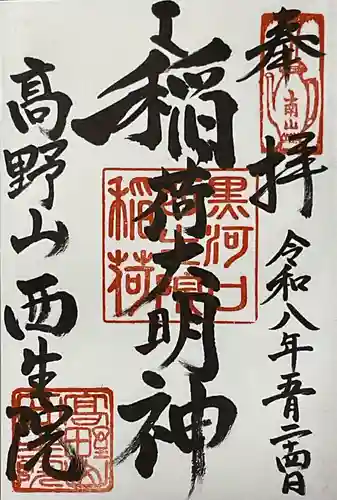 奉拝
令和八年五月二十四日
稲荷大明神
高野山 西生院
南山
黒河口
稲荷